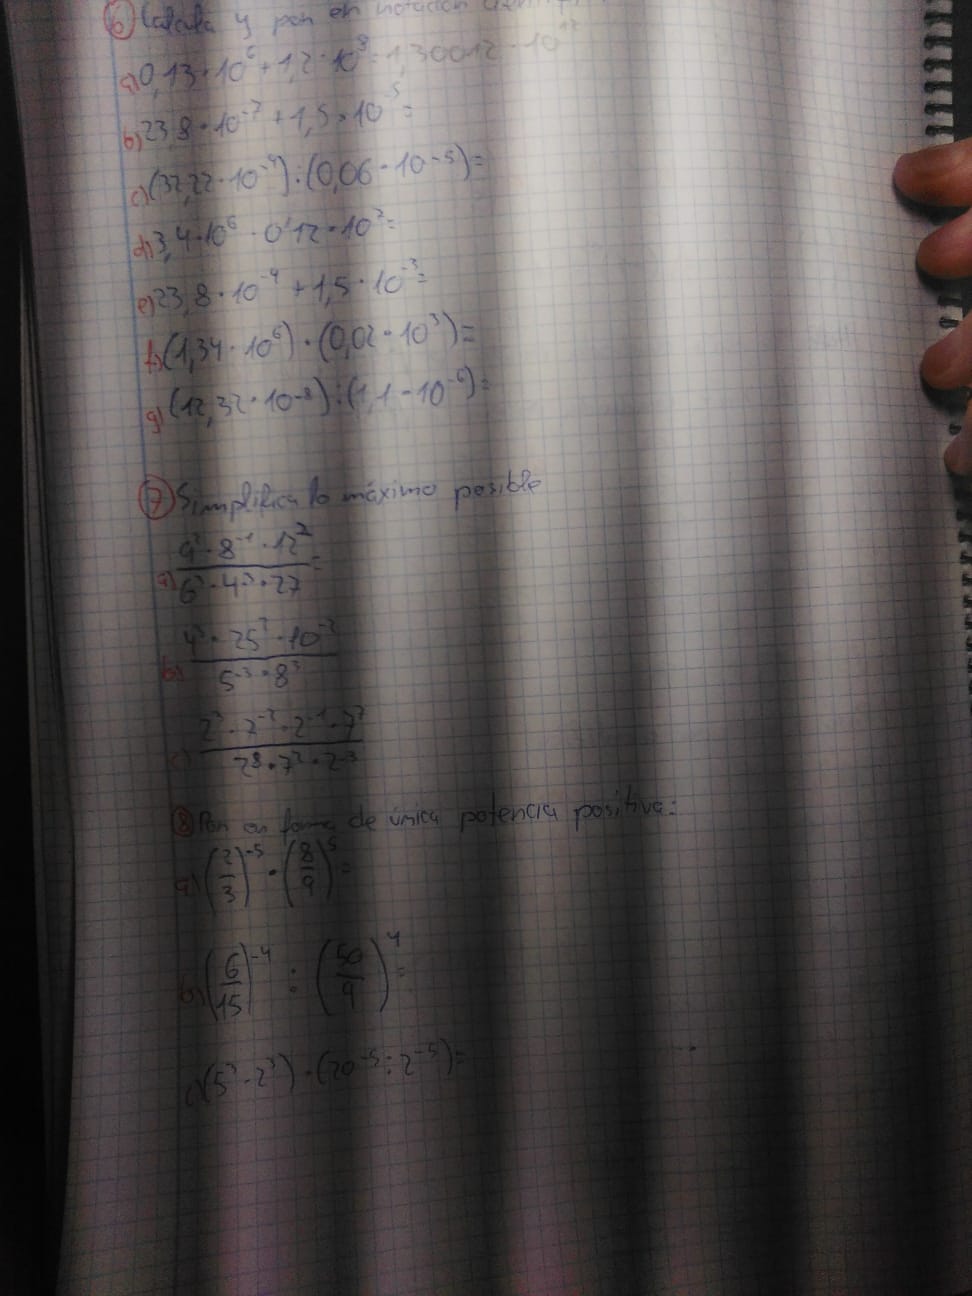 6) Calcula y pon en notación
a) 0,13·10⁶ + 1,2·10⁸ = 1,30012·10¹²
b) 23,8·10⁻⁷ + 1,5·10⁻⁵ =
c) (32,22·10⁻⁴) : (0,06·10⁻⁵) =
d) 3,4·10⁶ - 0'12·10² =
e) 23,8·10⁻⁴ + 1,5·10⁻³ =
f) (1,34·10⁶) · (0,02·10³) =
g) (12,32·10⁻⁸) : (1,1·10⁻⁶) =
7) Simplifica lo máximo posible
a) 9²·8⁻¹·12² / 6³·4³·27 =
b) 4³·25²·10⁻² / 5⁻³·8³
c) 2²·2⁻²·2⁻¹·7² / 2⁸·7²·2⁻³
8) Pon en forma de única potencia positiva:
a) (2/3)⁻⁵ · (8/9)⁵ =
b) (6/15)⁻⁴ : (50/9)⁴ =
c) (5³·2³) · (20⁻⁵ : 2⁻⁵) =